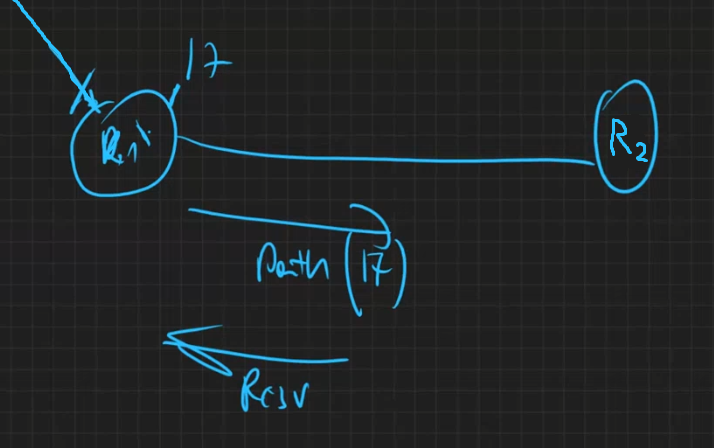 17
R1
R2
Path (17)
Resv